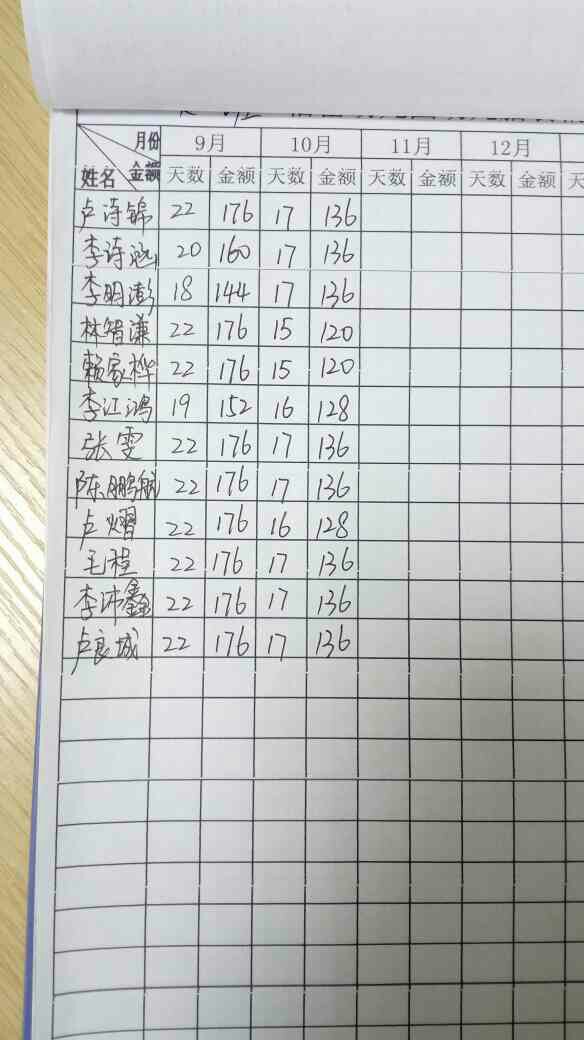 月份 9月 10月 11月 12月
金额
姓名 天数 金额 天数 金额 天数 金额 天数 金额 天
卢诗锦 22 176 17 136
李诗涵 20 160 17 136
李明澎 18 144 17 136
林智谦 22 176 15 120
赖家桦 22 176 15 120
李江鸿 19 152 16 128
张雯 22 176 17 136
陈鹏航 22 176 17 136
卢熠 22 176 16 128
毛程 22 176 17 136
李沛鑫 22 176 17 136
卢良城 22 176 17 136